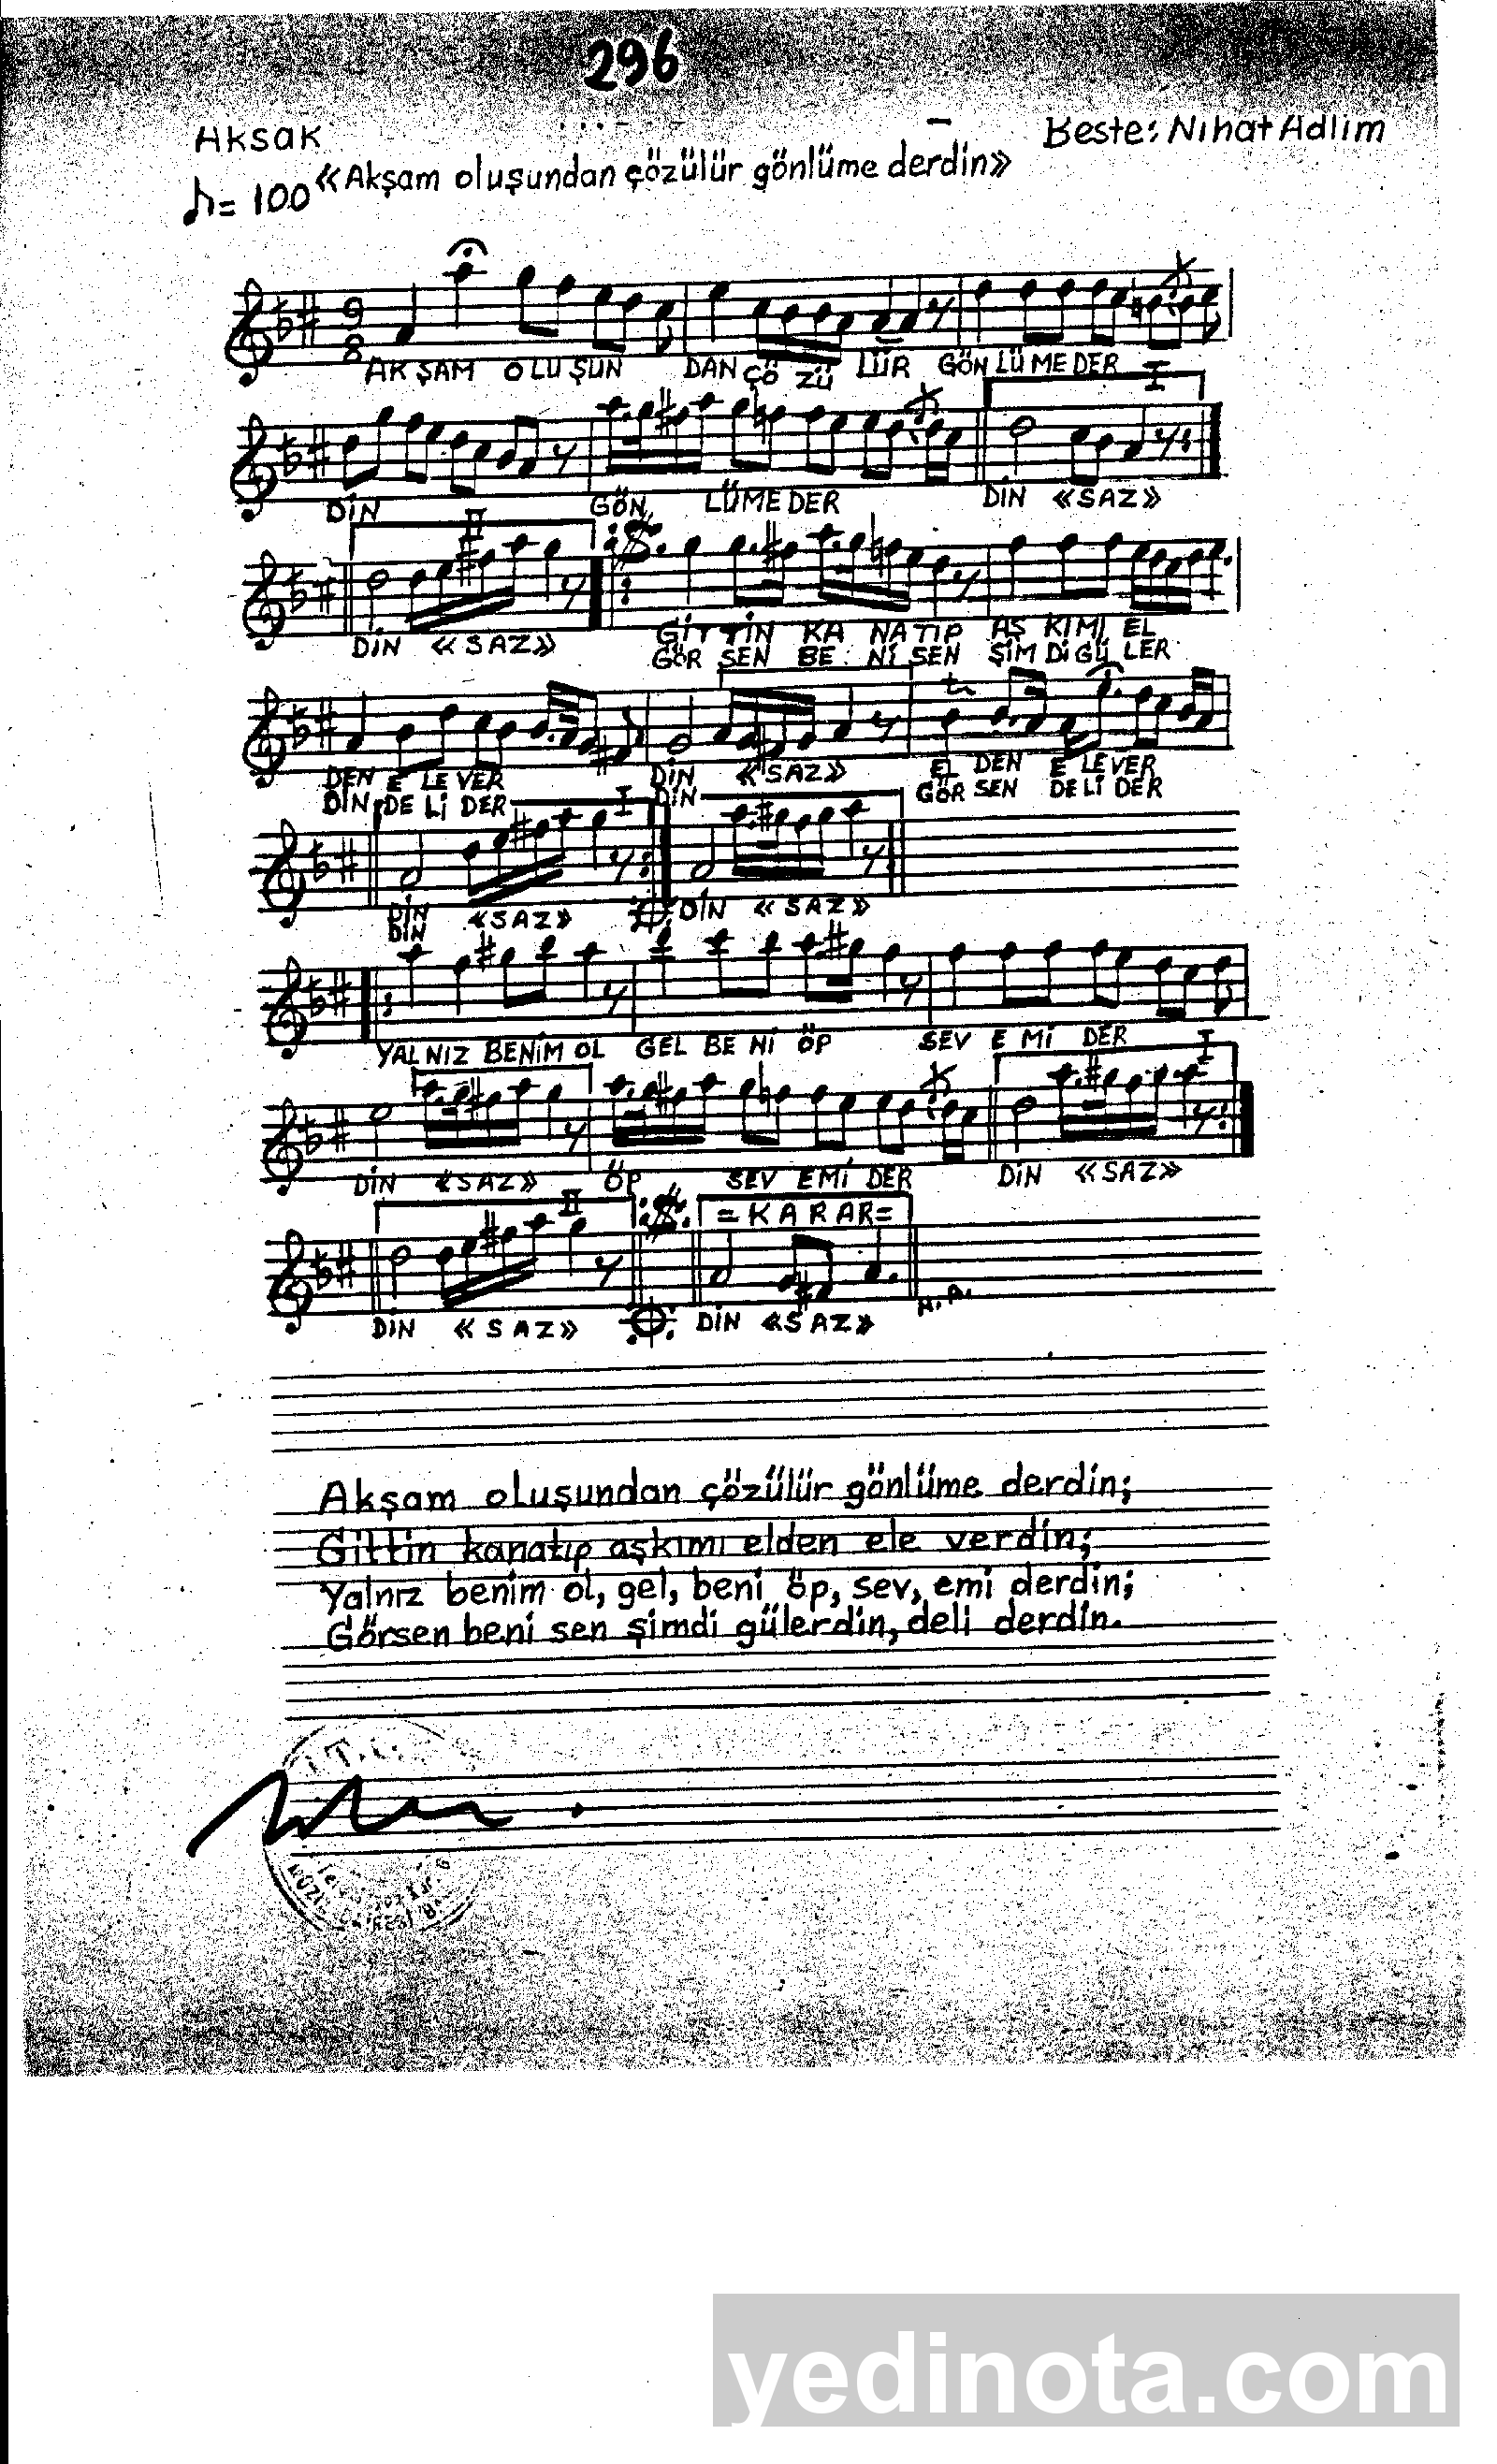 296
Aksak
Beste: Nihat Adlim
♪= 100 «Akşam oluşundan çözülür gönlüme derdin»
9
8
AK ŞAM O LU ŞUN DAN ÇÖ ZÜ LÜR GÖN LÜ ME DER
I
DİN GÖN LÜ ME DER DİN «SAZ»
II
DİN «SAZ» GİT TİN KA NA TIP AŞ KI MI EL
GÖR SEN BE Nİ SEN ŞİM Dİ GÜ LER
tr
DEN E LE VER DİN «SAZ» EL DEN E LE VER
DİN DE Lİ DER DİN GÖR SEN DE Lİ DER
I
DİN «SAZ» DİN «SAZ»
DİN
YAL NIZ BENİM OL GEL BE Nİ ÖP SEV E Mİ DER
I
DİN «SAZ» ÖP SEV E Mİ DER DİN «SAZ»
II
=KARAR=
DİN «SAZ» DİN «SAZ»
N.A.
Akşam oluşundan çözülür gönlüme derdin;
Gittin kanatıp aşkımı elden ele verdin;
Yalnız benim ol, gel, beni öp, sev, emi derdin;
Görsen beni sen şimdi gülerdin, deli derdin.
T.C.
yedinota.com